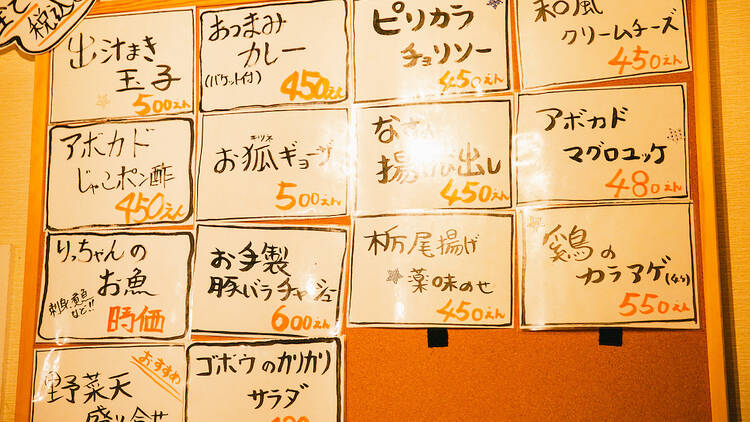 税込
出汁まき
玉子
500えん
おつまみ
カレー
(バケット付)
450えん
ピリカラ
チョリソー
450えん
和風
クリームチーズ
450えん
アボカド
じゃこポン酢
450えん
キツネ
お狐ギョーザ
500えん
揚げ出し
450えん
アボカド
マグロユッケ
480えん
りっちゃんの
お魚
刺身、煮魚
など!!
時価
お手製
豚バラチャーシュー
600えん
栃尾揚げ
薬味のせ
450えん
鶏の
カラアゲ(4コ)
550えん
おすすめ
野菜天
盛り合せ
ゴボウのカリカリ
サラダ